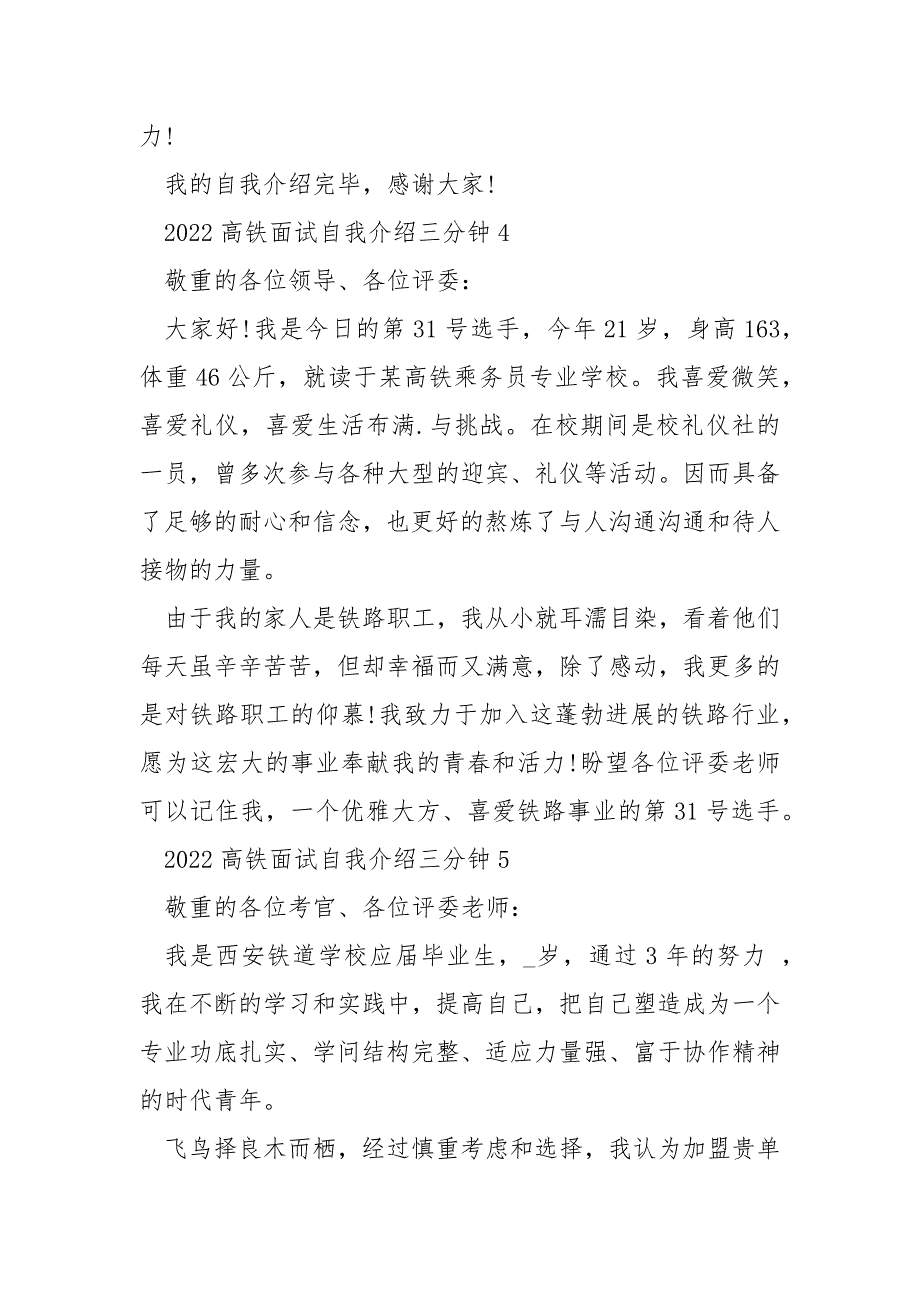 力!
我的自我介绍完毕，感谢大家!
2022 高铁面试自我介绍三分钟 4
敬重的各位领导、各位评委：
大家好!我是今日的第 31 号选手，今年 21 岁，身高 163，
体重 46 公斤，就读于某高铁乘务员专业学校。我喜爱微笑，
喜爱礼仪，喜爱生活布满.与挑战。在校期间是校礼仪社的
一员，曾多次参与各种大型的迎宾、礼仪等活动。因而具备
了足够的耐心和信念，也更好的熬炼了与人沟通沟通和待人
接物的力量。
由于我的家人是铁路职工，我从小就耳濡目染，看着他们
每天虽辛辛苦苦，但却幸福而又满意，除了感动，我更多的
是对铁路职工的仰慕!我致力于加入这蓬勃进展的铁路行业，
愿为这宏大的事业奉献我的青春和活力!盼望各位评委老师
可以记住我，一个优雅大方、喜爱铁路事业的第 31 号选手。
2022 高铁面试自我介绍三分钟 5
敬重的各位考官、各位评委老师：
我是西安铁道学校应届毕业生，_岁，通过 3 年的努力 ，
我在不断的学习和实践中，提高自己，把自己塑造成为一个
专业功底扎实、学问结构完整、适应力量强、富于协作精神
的时代青年。
飞鸟择良木而栖，经过慎重考虑和选择，我认为加盟贵单